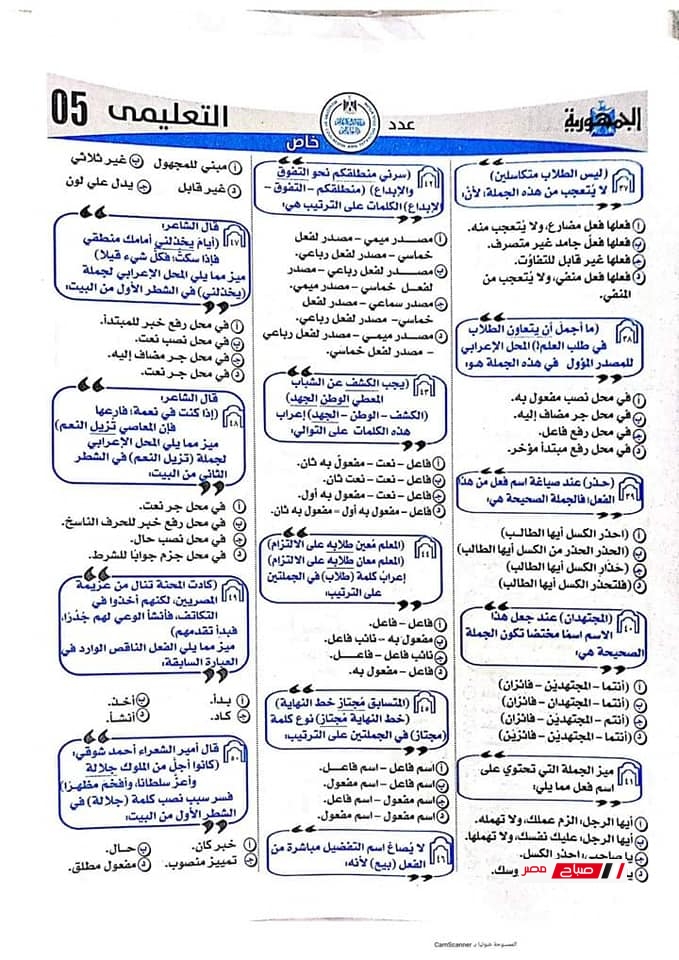 الجمهورية
عدد
خاص
التعليمى
05
٣٧
(ليس الطلاب متكاسلين)
لا يُتعجب من هذه الجملة، لأن:
أ فعلها فعل مضارع، ولا يُتعجب منه.
ب فعلها فعل جامد غير متصرف.
ج فعلها غير قابل للتفاوُت.
د فعلها فعل منفي، ولا يُتعجب من
المنفي.
٣٨
(ما أجمل أن يتعاون الطلاب
في طلب العلم!) المحل الإعرابي
للمصدر المؤول في هذه الجملة هو:
أ في محل نصب مفعول به.
ب في محل جر مضاف إليه.
ج في محل رفع فاعل.
د في محل رفع مبتدأ مؤخر.
٣٩
(حذر) عند صياغة اسم فعل من هذا
الفعل؛ فالجملة الصحيحة هي:
أ (احذر الكسل أيها الطالب)
ب (الحذر الحذر من الكسل أيها الطالب)
ج (حَذار الكسل أيها الطالب)
د (فلتحذر الكسل أيها الطالب)
٤٠
(المجتهدان) عند جعل هذا
الاسم اسمًا مختصًا تكون الجملة
الصحيحة هي:
أ (أنتما – المجتهديْن – فائزان)
ب (أنتما – المجتهدان – فائزان)
ج (أنتم – المجتهديْن – فائزان)
د (أنتما – المجتهديْن – فائزيْن)
٤١
ميز الجملة التي تحتوي على
اسم فعل مما يلي:
أ أيها الرجل: الزم عملك، ولا تهمله.
ب أيها الرجل: عليك نفسك، ولا تهملها.
ج يا صاحبي: احذر الكسل.
د
وسك.
٤٢
(سرني منطلقكم نحو التفوق
والإبداع) (منطلقكم – التفوق –
الإبداع) الكلمات على الترتيب هي:
أ مصدر ميمي – مصدر لفعل
خماسي – مصدر لفعل رباعي.
ب مصدر لفعل رباعي – مصدر
لفعل خماسي – مصدر ميمي.
ج مصدر سماعي – مصدر لفعل
خماسي – مصدر لفعل رباعي.
د مصدر ميمي – مصدر لفعل رباعي
– مصدر لفعل خماسي.
٤٣
(يجب الكشف عن الشباب
المعطي الوطن الجهد)
(الكشف – الوطن – الجهد) إعراب
هذه الكلمات على التوالي:
أ فاعل – نعت – مفعول به ثان.
ب فاعل – نعت – نعت ثان.
ج فاعل – نعت – مفعول به أول.
د فاعل – مفعول به أول – مفعول به ثان.
٤٤
(المعلم مُعين طلابه على الالتزام)
(المعلم معان طلابه على الالتزام)
إعراب كلمة (طلاب) في الجملتين
على الترتيب:
أ فاعل – فاعل.
ب مفعول به – نائب فاعل.
ج نائب فاعل – فاعل.
د فاعل – مفعول به.
٤٥
(المتسابق مُجتاز خط النهاية)
(خط النهاية مُجتاز) نوع كلمة
(مجتاز) في الجملتين على الترتيب:
أ اسم فاعل – اسم فاعل.
ب اسم فاعل – اسم مفعول.
ج اسم مفعول – اسم فاعل.
د اسم مفعول – اسم مفعول.
٤٦
لا يُصاغ اسم التفضيل مباشرة من
الفعل (بيع) لأنه:
أ مبني للمجهول
ب غير ثلاثي
د غير قابل
ج يدل علي لون
٤٧
قال الشاعر:
(أيامَ يخذلني أمامك منطقي
فإذا سكتُ؛ فكلُّ شيء قيلا)
ميز مما يلي المحل الإعرابي لجملة
(يخذلني) في الشطر الأول من البيت:
أ في محل رفع خبر للمبتدأ.
ب في محل نصب نعت.
ج في محل جر مضاف إليه.
د في محل جر نعت.
٤٨
قال الشاعر:
(إذا كنت في نعمة؛ فارعها
فإن المعاصي تُزيل النعم)
ميز مما يلي المحل الإعرابي
لجملة (تزيل النعم) في الشطر
الثاني من البيت:
أ في محل جر نعت.
ب في محل رفع خبر للحرف الناسخ.
ج في محل نصب حال.
د في محل جزم جوابًا للشرط.
٤٩
(كادت المحنة تنال من عزيمة
المصريين، لكنهم أخذوا في
التكاتف، فأنشأ الوعي لهم جُدُرًا،
فبدأ تقدمهم)
ميز مما يلي الفعل الناقص الوارد في
العبارة السابقة:
أ بدأ.
ب أخذ.
ج كاد.
د أنشأ.
٥٠
قال أمير الشعراء أحمد شوقي:
(كانوا أجلَّ من الملوك جلالة
وأعزَّ سلطانًا، وأفخمَ مظهرًا)
فسر سبب نصب كلمة (جلالة) في
الشطر الأول من البيت:
أ خبر كان.
ب حال.
ج تمييز منصوب.
د مفعول مطلق.
صباح مصر
الممسوحة ضوئيا بـ CamScanner